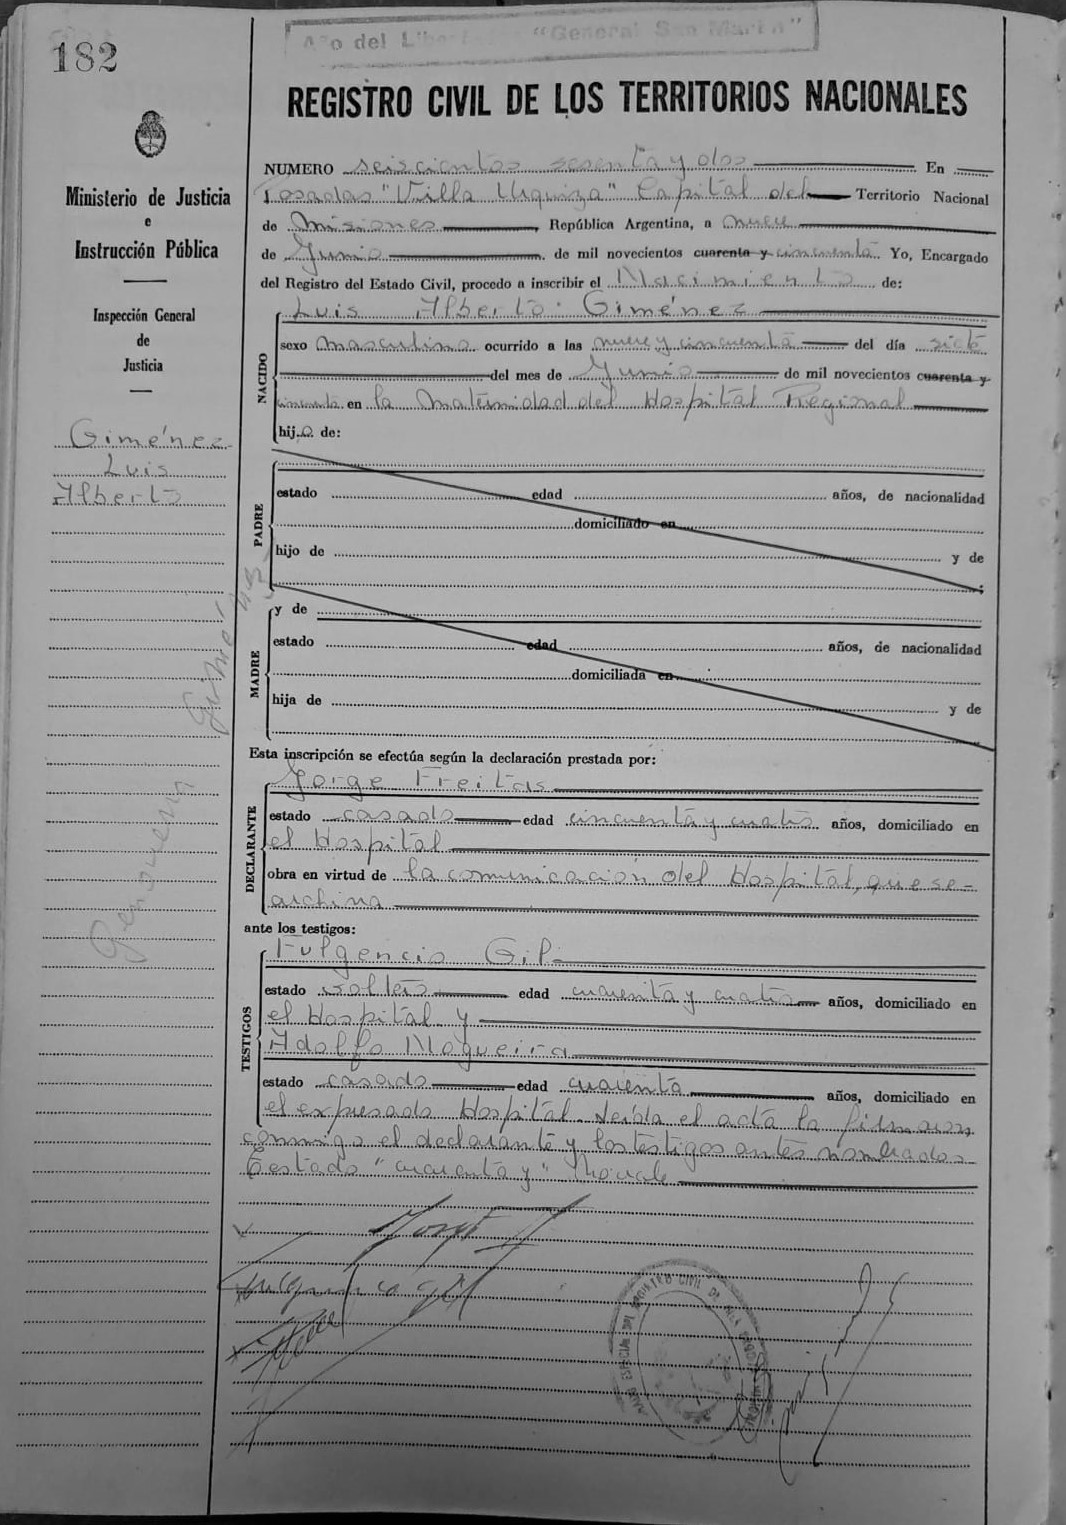 182
Año del Libertador "General San Martín"
REGISTRO CIVIL DE LOS TERRITORIOS NACIONALES
Ministerio de Justicia
e
Instrucción Pública
Inspección General
de
Justicia
Giménez
Luis
Alberto
NUMERO seiscientos sesenta y dos En
Posadas "Villa Urquiza" Capital del Territorio Nacional
de Misiones, República Argentina, a nueve
de Junio de mil novecientos cuarenta y cincuenta Yo, Encargado
del Registro del Estado Civil, procedo a inscribir el Nacimiento de:
NACIDO
Luis Alberto Giménez
sexo masculino ocurrido a las nueve y cincuenta del día siete
del mes de Junio de mil novecientos cuarenta y
cincuenta en la Maternidad del Hospital Regional
hijo de:
PADRE
estado edad años, de nacionalidad
domiciliado en
hijo de y de
MADRE
y de
estado edad años, de nacionalidad
domiciliada en
hija de y de
Esta inscripción se efectúa según la declaración prestada por:
DECLARANTE
Jorge Freitas
estado casado edad cincuenta y cuatro años, domiciliado en
el Hospital
obra en virtud de la comunicación del Hospital, que se
archiva
ante los testigos:
TESTIGOS
Fulgencio Gil
estado soltero edad cuarenta y cuatro años, domiciliado en
el Hospital y
Adolfo Nogueira
estado casado edad cuarenta años, domiciliado en
el expresado Hospital. Leída el acta la firmaron
conmigo el declarante y los testigos antes nombrados
Testado "cuarenta y" No vale